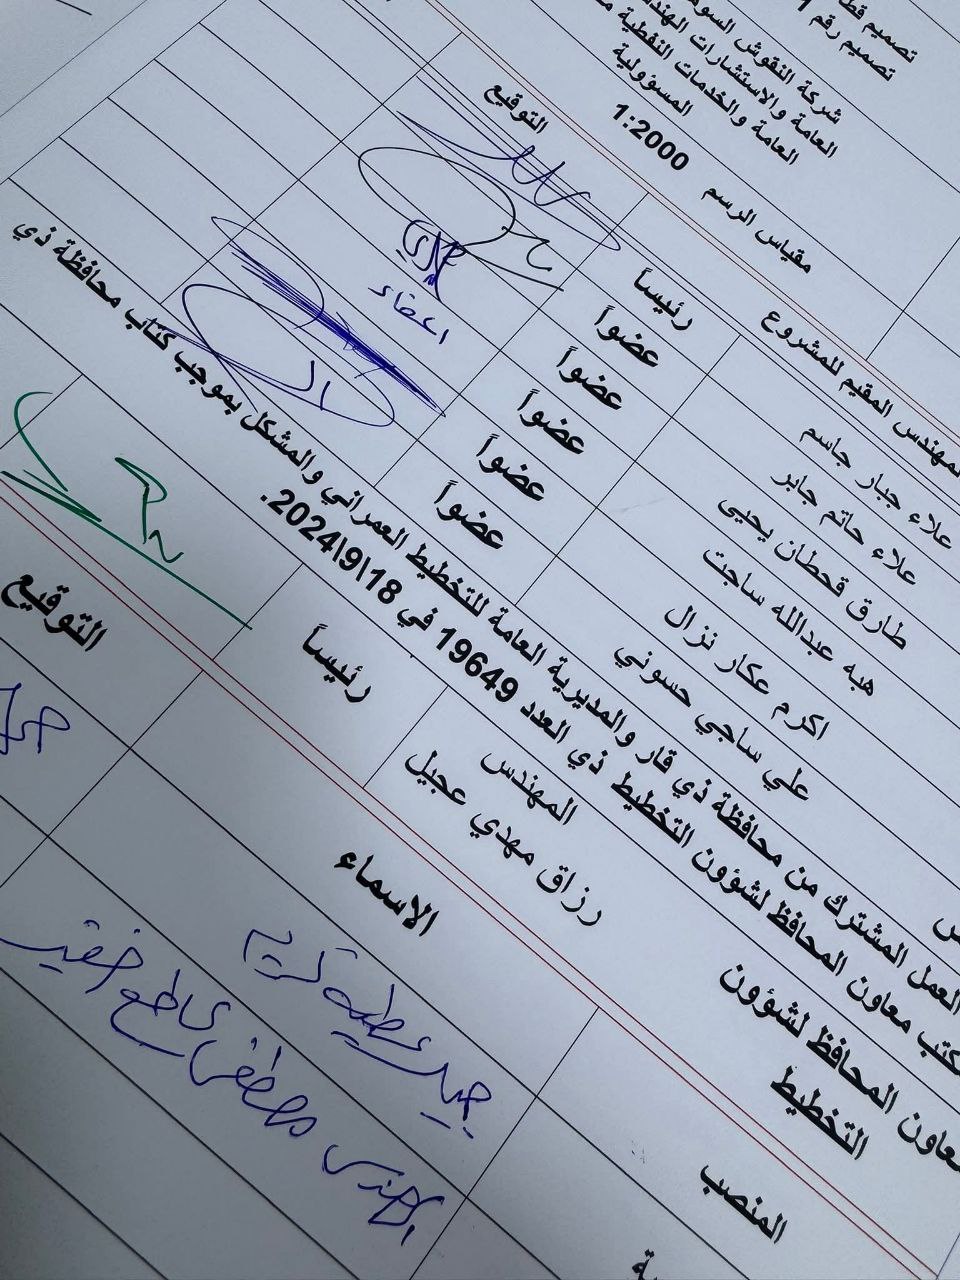 تصميم رقم
شركة النقوش
العامة والاستشارات
العامة والخدمات النفطية
المسؤولية
مقياس الرسم 1:2000
المهندس المقيم للمشروع التوقيع
علاء جبار جاسم رئيساً
علاء حاتم جابر عضواً
طارق قحطان يحيى عضواً
هبه عبدالله ساجت عضواً اعضاء
اكرم عكار نزال عضواً
علي ساجي حسوني عضواً
العمل المشترك من محافظة ذي قار والمديرية العامة للتخطيط العمراني والمشكل بموجب كتاب محافظة ذي
معاون المحافظ لشؤون التخطيط ذي العدد 19649 في 18\9\2024.
معاون المحافظ لشؤون التخطيط
المهندس
رزاق مهدي عجيل
رئيساً
المنصب الاسماء التوقيع
عطيه كريم
المهندس مصطفى كاطع خضير